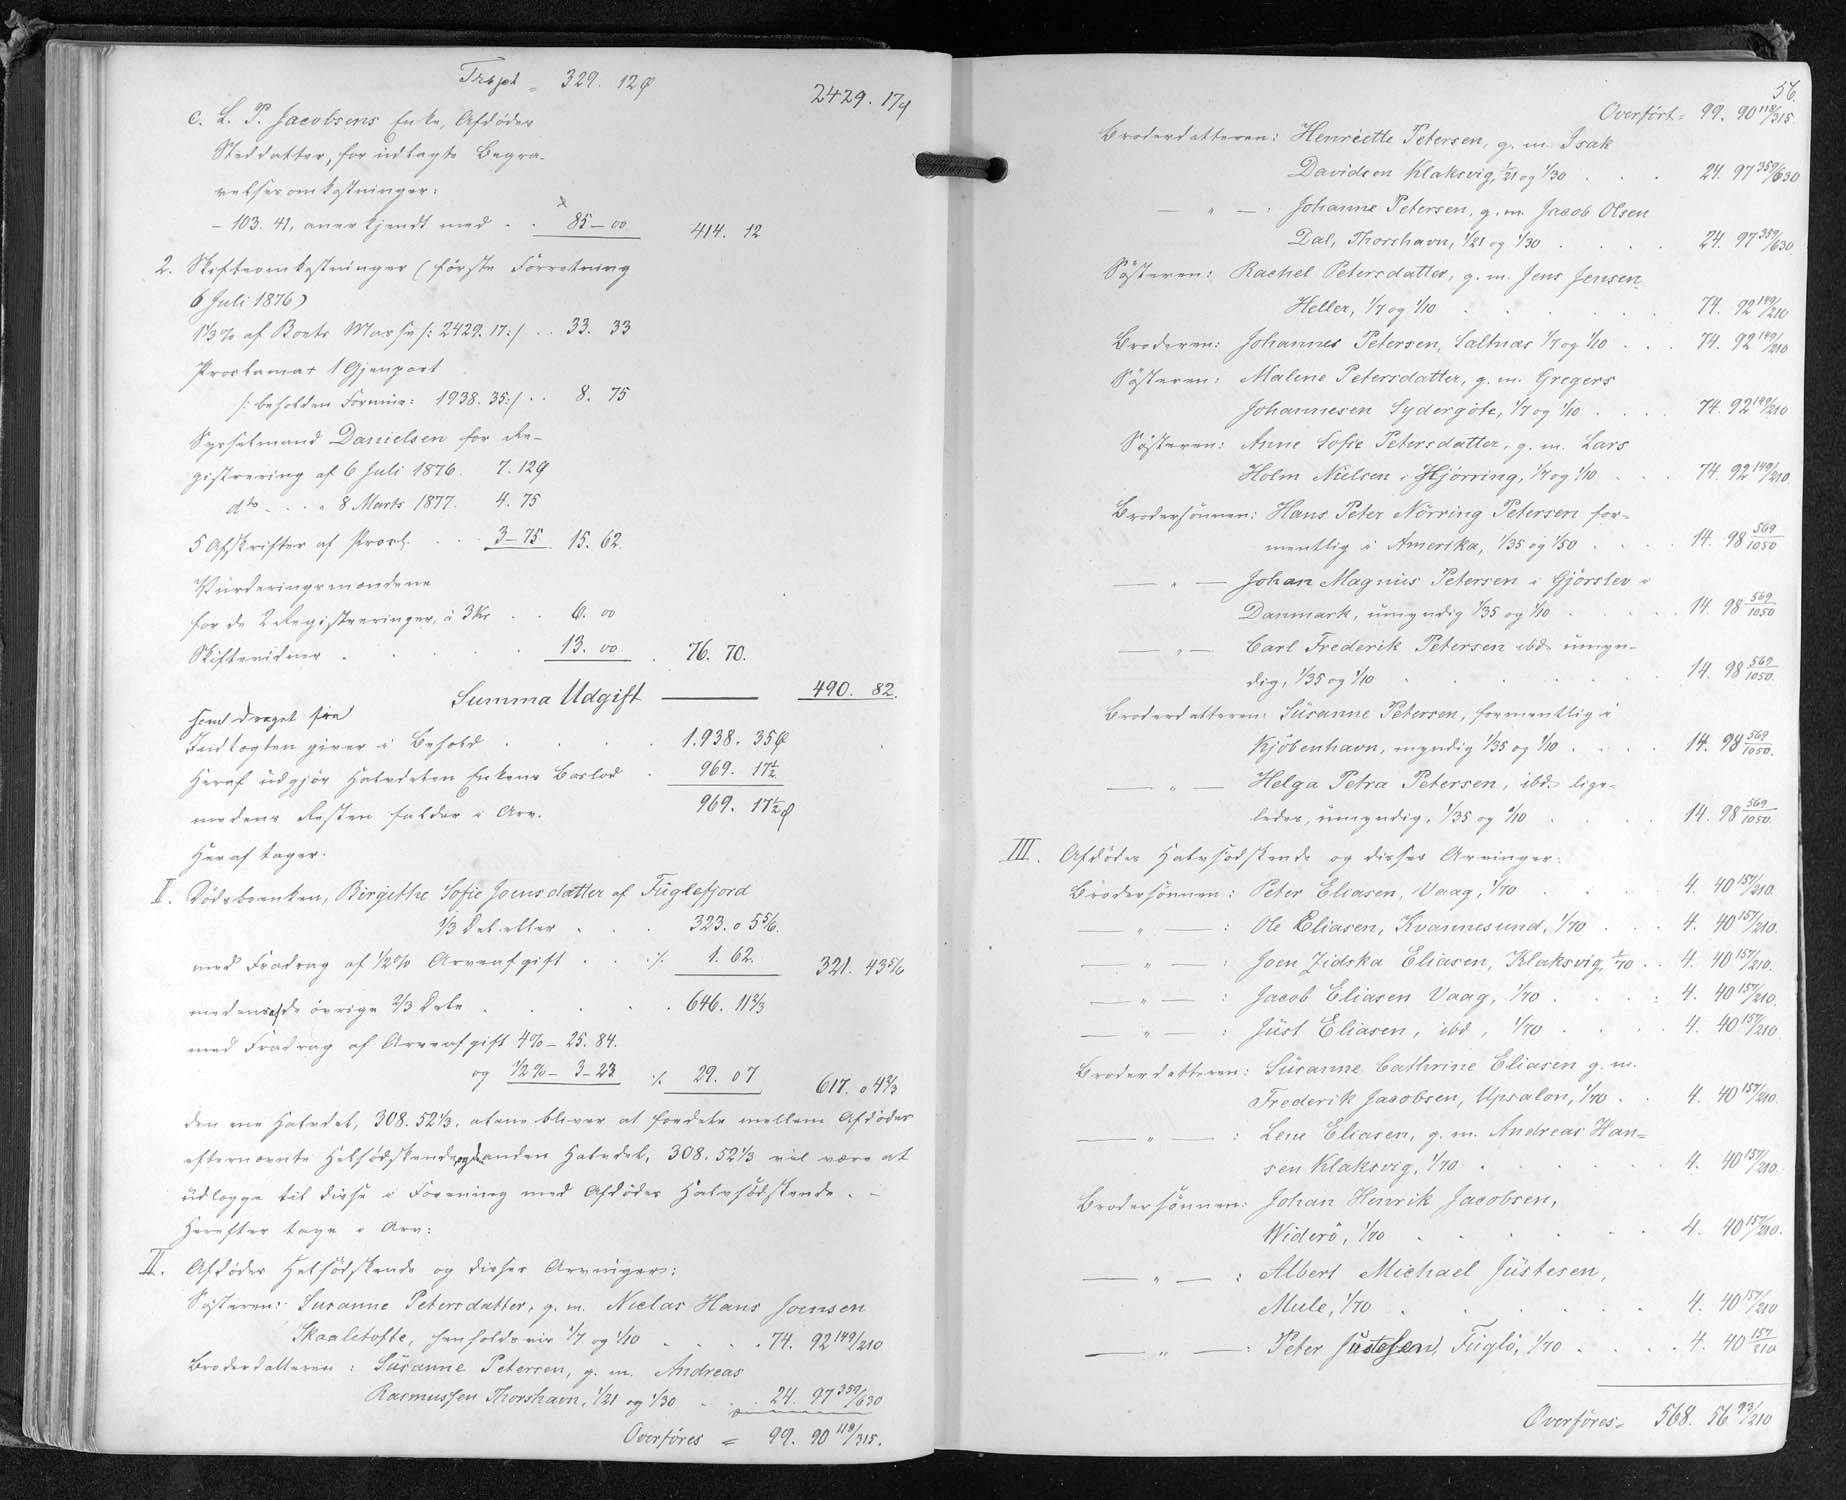 Trspt = 329. 12 Ø
2429. 17 Ø
c. L. P. Jacobsens Enke, Afdødes
Steddatter, for udlagte Begra-
velsesomkostninger:
- 103. 41, anerkjendt med . . 85 - 00 414. 12
2. Skifteomkostninger (første Forretning
6 Juli 1876)
1⅓ % af Boets Masse /: 2429. 17 :/ . . 33. 33
Proclama + 1 Gjenpart
/: beholden Formue: 1938. 35 :/ . . 8. 75
Sysselmand Danielsen for Re-
gistrering af 6 Juli 1876. 7. 12 Ø
do . . . " 8 Marts 1877. 4. 75
5 Afskrifter af Procl. . . . 3 - 75 15. 62.
Vurderingsmændene
for de 2 Registreringer, à 3 Kr . . 6. 00
Skiftevidner . . . . 13. 00 . 76. 70.
Summa Udgift 490. 82.
som draget fra
Indtægten giver i Behold . . . . 1.938. 35 Ø
Heraf udgjør Halvdelen Enkens Boslod . 969. 17½
medens Resten falder i Arv. 969. 17½ Ø
Heraf tager:
I. Dødsboenken, Birgithe Sofie Joensdatter af Fuglefjord
1/3 Del eller . . . 323. 0 5 5/6.
med Fradrag af 1/2 % Arveafgift . . ⁒ 1. 62. 321. 43 5/6
medens af de øvrige 2/3 Dele . . . . 646. 11 2/3
med Fradrag af Arveafgift 4 % - 25. 84.
og 1/2 % - 3 - 23 ⁒ 29. 07 617. 0 4 2/3
den ene Halvdel, 308. 52 1/3, alene bliver at fordele mellem Afdødes
efternævnte Helsødskende, og den anden Halvdel, 308. 52 1/3 vil være at
udlægge til disse i Forening med Afdødes Halvsødskende. -
Herefter tage i Arv:
II. Afdødes Helsødskende og disses Arvinger:
Søsteren: Susanne Petersdatter, g. m. Niclas Hans Joensen
Skaaletofte, henholdsvis 1/7 og 1/10 . . . . 74. 92 149/210
Broderdatteren: Susanne Petersen, g. m. Andreas
Rasmussen Thorshavn, 1/21 og 1/30 . . . 24. 97 359/630
Overføres = 99. 90 118/315.
56.
Overført = 99. 90 118/315.
Broderdatteren: Henriette Petersen, g. m. Isak
Davidsen Klaksvig, 1/21 og 1/30 . . . 24. 97 359/630
— " — : Johanne Petersen, g. m. Jacob Olsen
Dal, Thorshavn, 1/21 og 1/30 . . . . 24. 97 359/630.
Søsteren: Rachel Petersdatter, g. m. Jens Jensen
Heller, 1/7 og 1/10 . . . . . . 74. 92 149/210
Broderen: Johannes Petersen, Saltnæs 1/7 og 1/10 . . . 74. 92 149/210
Søsteren: Malene Petersdatter, g. m. Gregers
Johannesen Sydergöte, 1/7 og 1/10 . . . . 74. 92 149/210
Søsteren: Anne Sofie Petersdatter, g. m. Lars
Holm Nielsen i Hjørring, 1/7 og 1/10 . . . 74. 92 149/210.
Brodersønnen: Hans Peter Nörring Petersen for-
mentlig i Amerika, 1/35 og 1/50 . . . . 14. 98 569/1050
— " — Johan Magnus Petersen i Gjörslev i
Danmark, umyndig 1/35 og 1/10 . . . . . 14. 98 569/1050
— " — Carl Frederik Petersen ibd. umyn-
dig, 1/35 og 1/10 . . . . . . . 14. 98 569/1050.
Broderdatteren: Susanne Petersen, formentlig i
Kjöbenhavn, myndig 1/35 og 1/10 . . . . 14. 98 569/1050.
— " — Helga Petra Petersen, ibd. lige-
ledes, umyndig, 1/35 og 1/10 . . . . 14. 98 569/1050.
III. Afdødes Halvsødskende og disses Arvinger:
Brodersønnen: Peter Eliasen, Vaag, 1/70 . . . . 4. 40 157/210.
— " — : Ole Eliasen, Kvannesund, 1/70 . . . 4. 40 157/210.
— " — : Joen Zidska Eliasen, Klaksvig, 1/70 . . 4. 40 157/210.
— " — : Jacob Eliasen Vaag, 1/70 . . . . : 4. 40 157/210.
— " — : Just Eliasen, ibd, 1/70 . . . . 4. 40 157/210.
Broderdatteren: Susanne Cathrine Eliasen g. m.
Frederik Jacobsen, Upsalon, 1/70 . . 4. 40 157/210.
— " — : Lene Eliasen, g. m. Andreas Han=
sen Klaksvig, 1/70 . . . . . . 4. 40 157/210.
Brodersønnen: Johan Henrik Jacobsen,
Widerö, 1/70 . . . . . . 4. 40 157/210.
— " — : Albert Michael Justesen,
Mule, 1/70 . . . . . . . 4. 40 157/210
— " — : Peter Justesen, Fuglö, 1/70 . . . . . 4. 40 157/210
Overføres = 568. 56 93/210